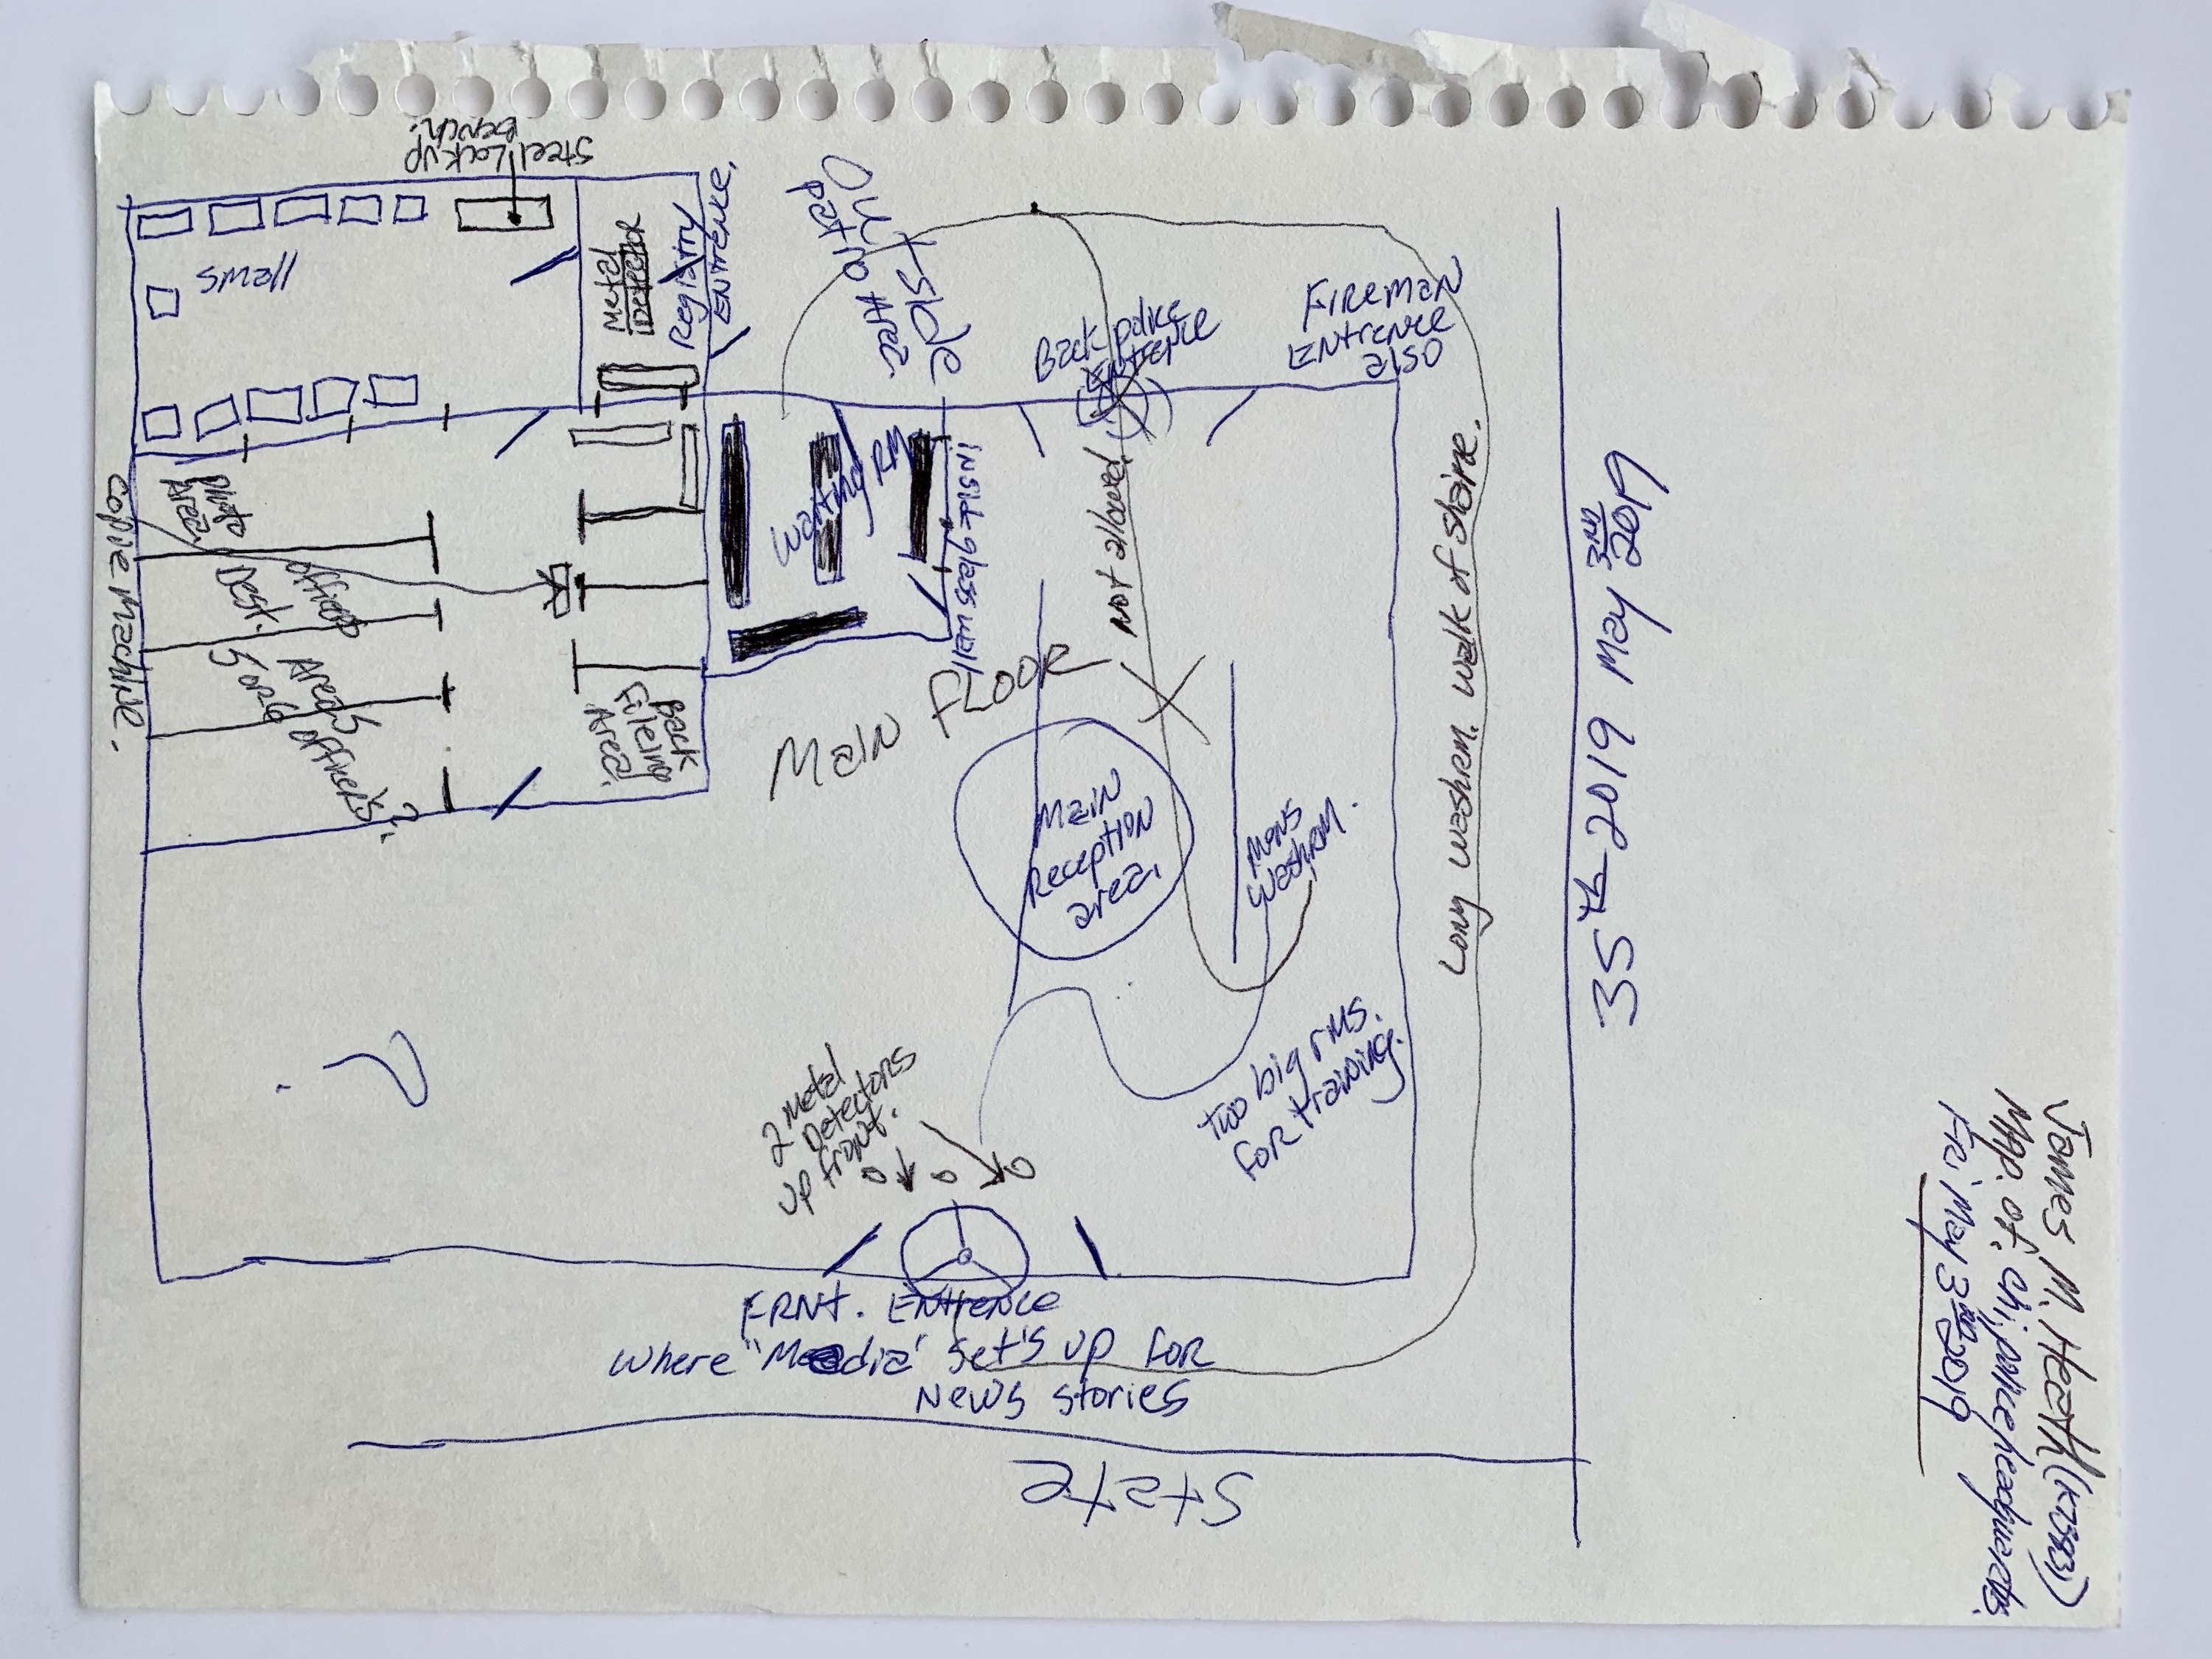 Steel Lock up
Bench.
Metal
Detector
Registry
Entrence.
Outside
patio
Heat
Area.
Back police
Entrence
Fireman
Entrence
also
Copie machine.
Area
Officer
Desk.
Area
5 or 6
Officer's
?
Back
Fileing
Area.
Waiting RM
inside glass wall
Not allowed
Main Floor
Main
Reception
area.
Mens
washrm.
Long washrm. walk of shame.
35th 2019 May 3RD
2019
2 Metal
Detectors
up front.
Two big rms.
for training.
FRNt. Entrence
Where "Media" Set's up for
News stories
State
James M. Heath (K75883)
Map. of. Chi, police headquarters.
Fri May 3RD 2019